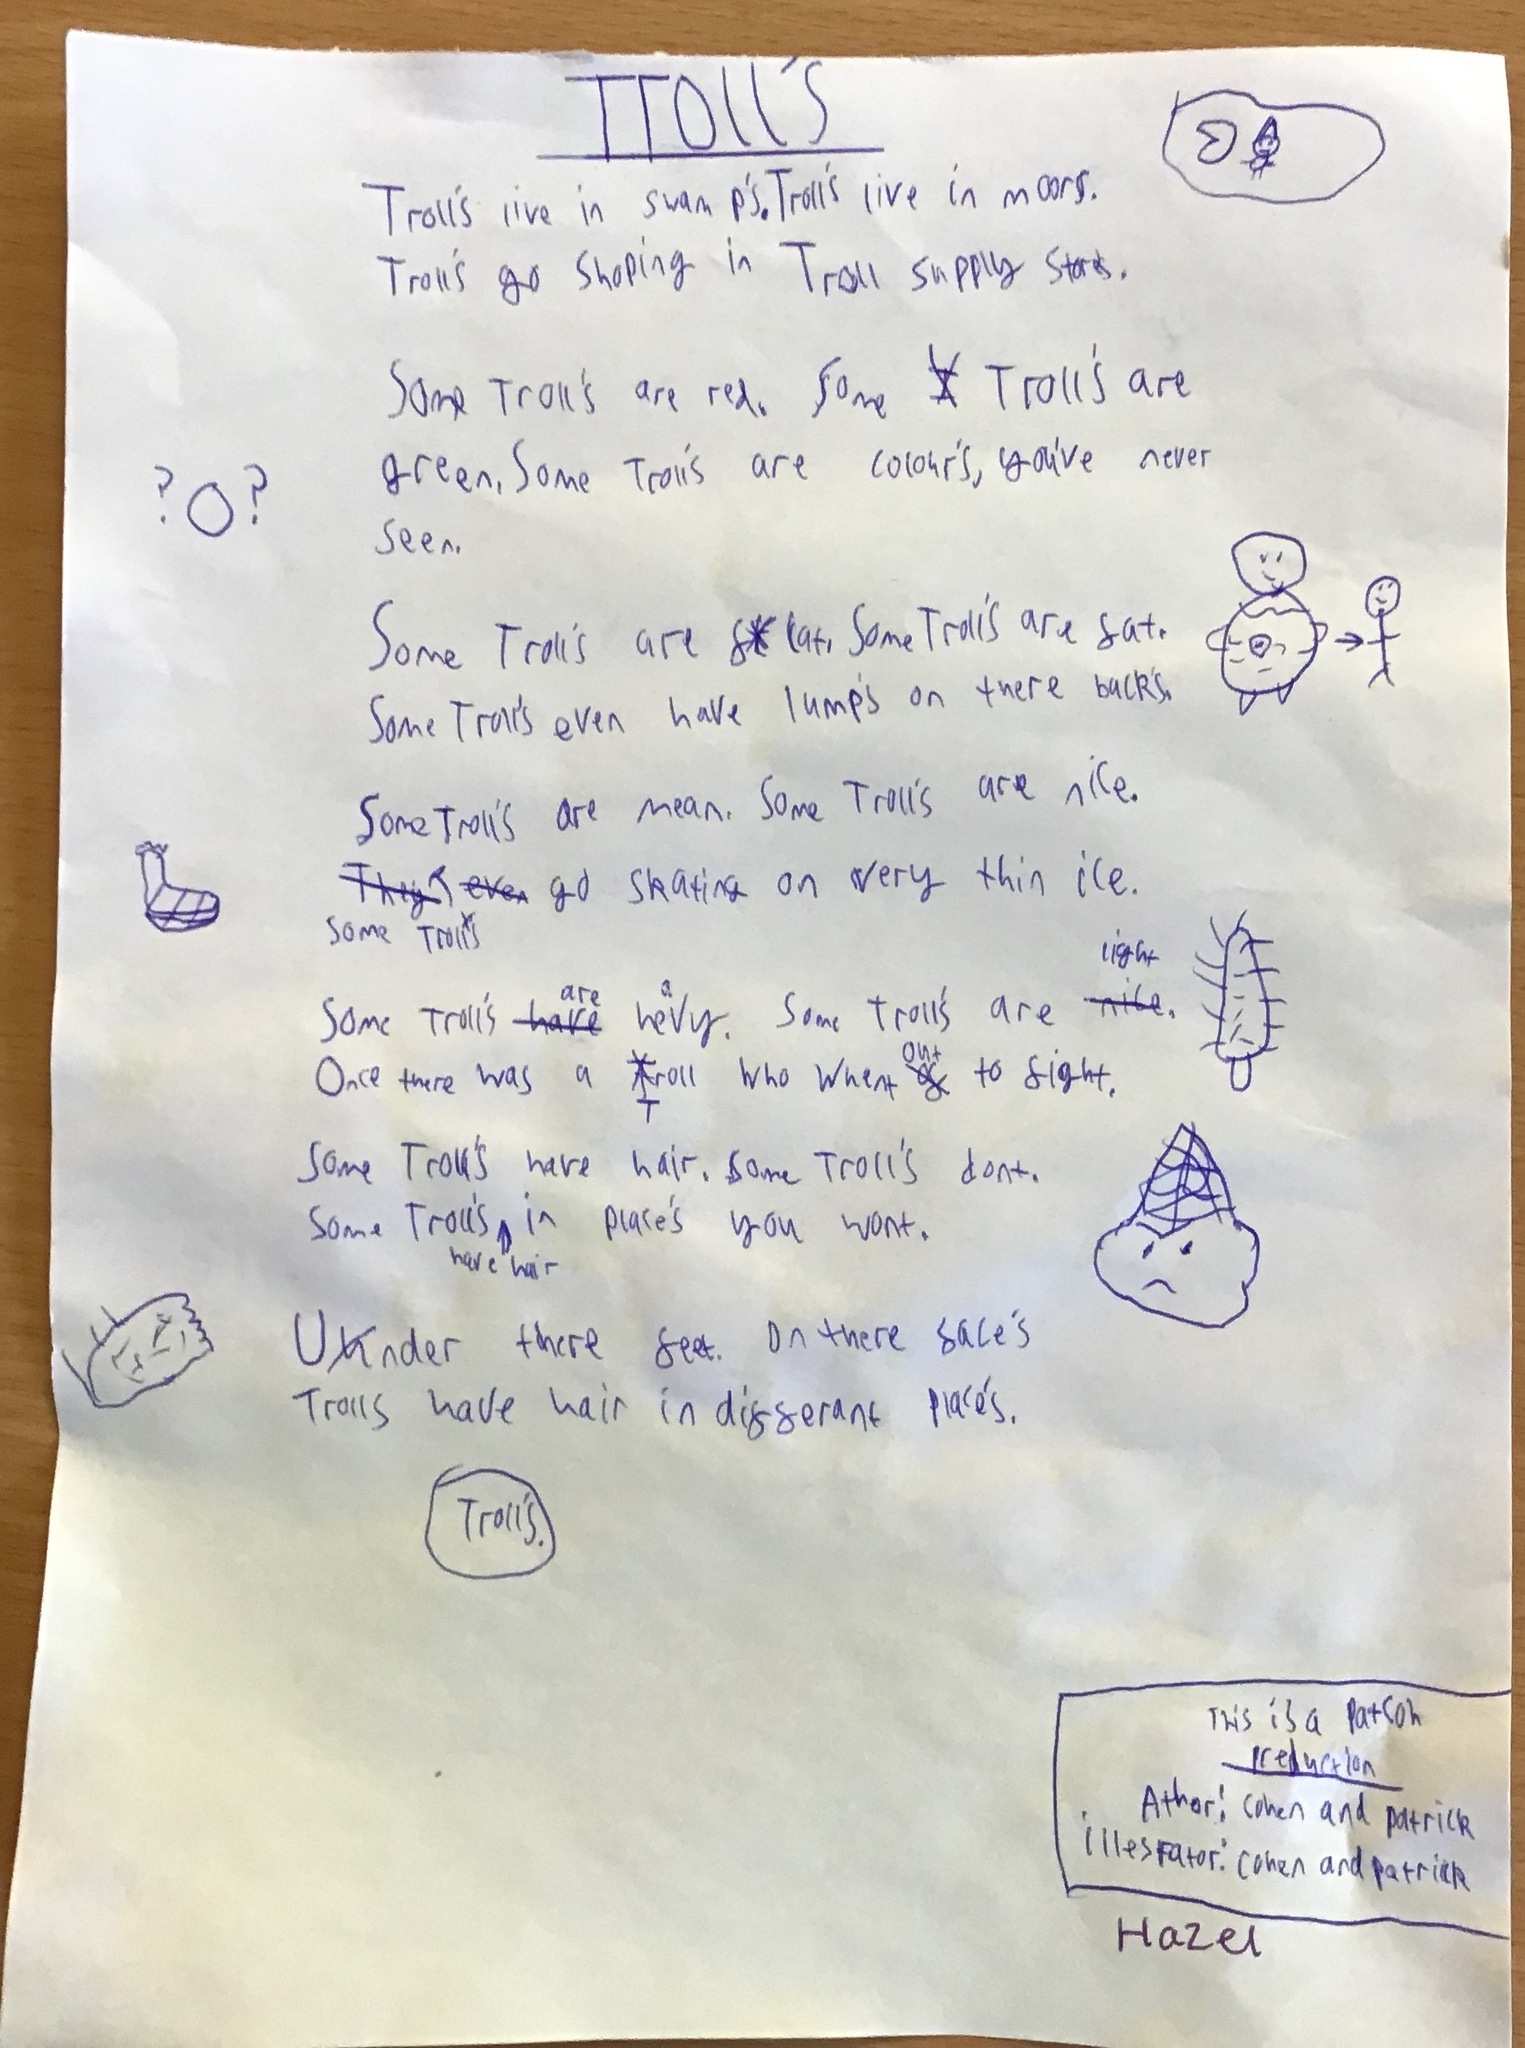 TROLL'S
Troll's live in swamp's. Troll's live in moors.
Troll's go shoping in Troll supply stores.
Some Troll's are red. Some Troll's are
green. Some Troll's are colour's, you've never
seen.
? O ?
Some Troll's are fat. Some Troll's are
Some Troll's even have lump's on there back's.
Some Troll's are mean. Some Troll's are nice.
They even go skating on very thin ice.
Some Troll's
are a light
Some Troll's have hevy. Some Troll's are nice.
out
Once there was a Troll who whent to fight.
T
Some Troll's have hair. Some Troll's dont.
Some Troll's in place's you wont.
have hair
Under there feet. On there face's
Trolls have hair in differant place's.
Troll's.
This is a Patcoh
preduction
Athor: cohen and patrick
illestrator: cohen and patrick
Hazel